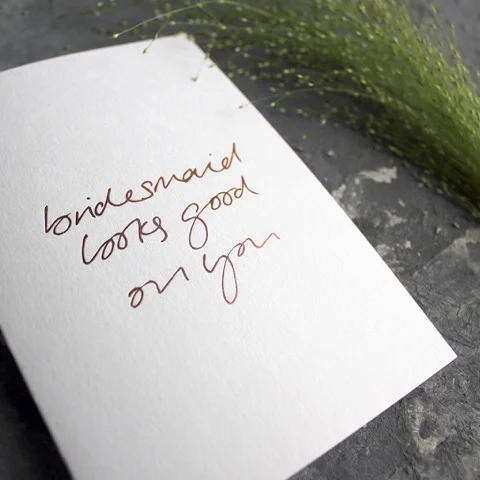 bridesmaid
looks good
on you